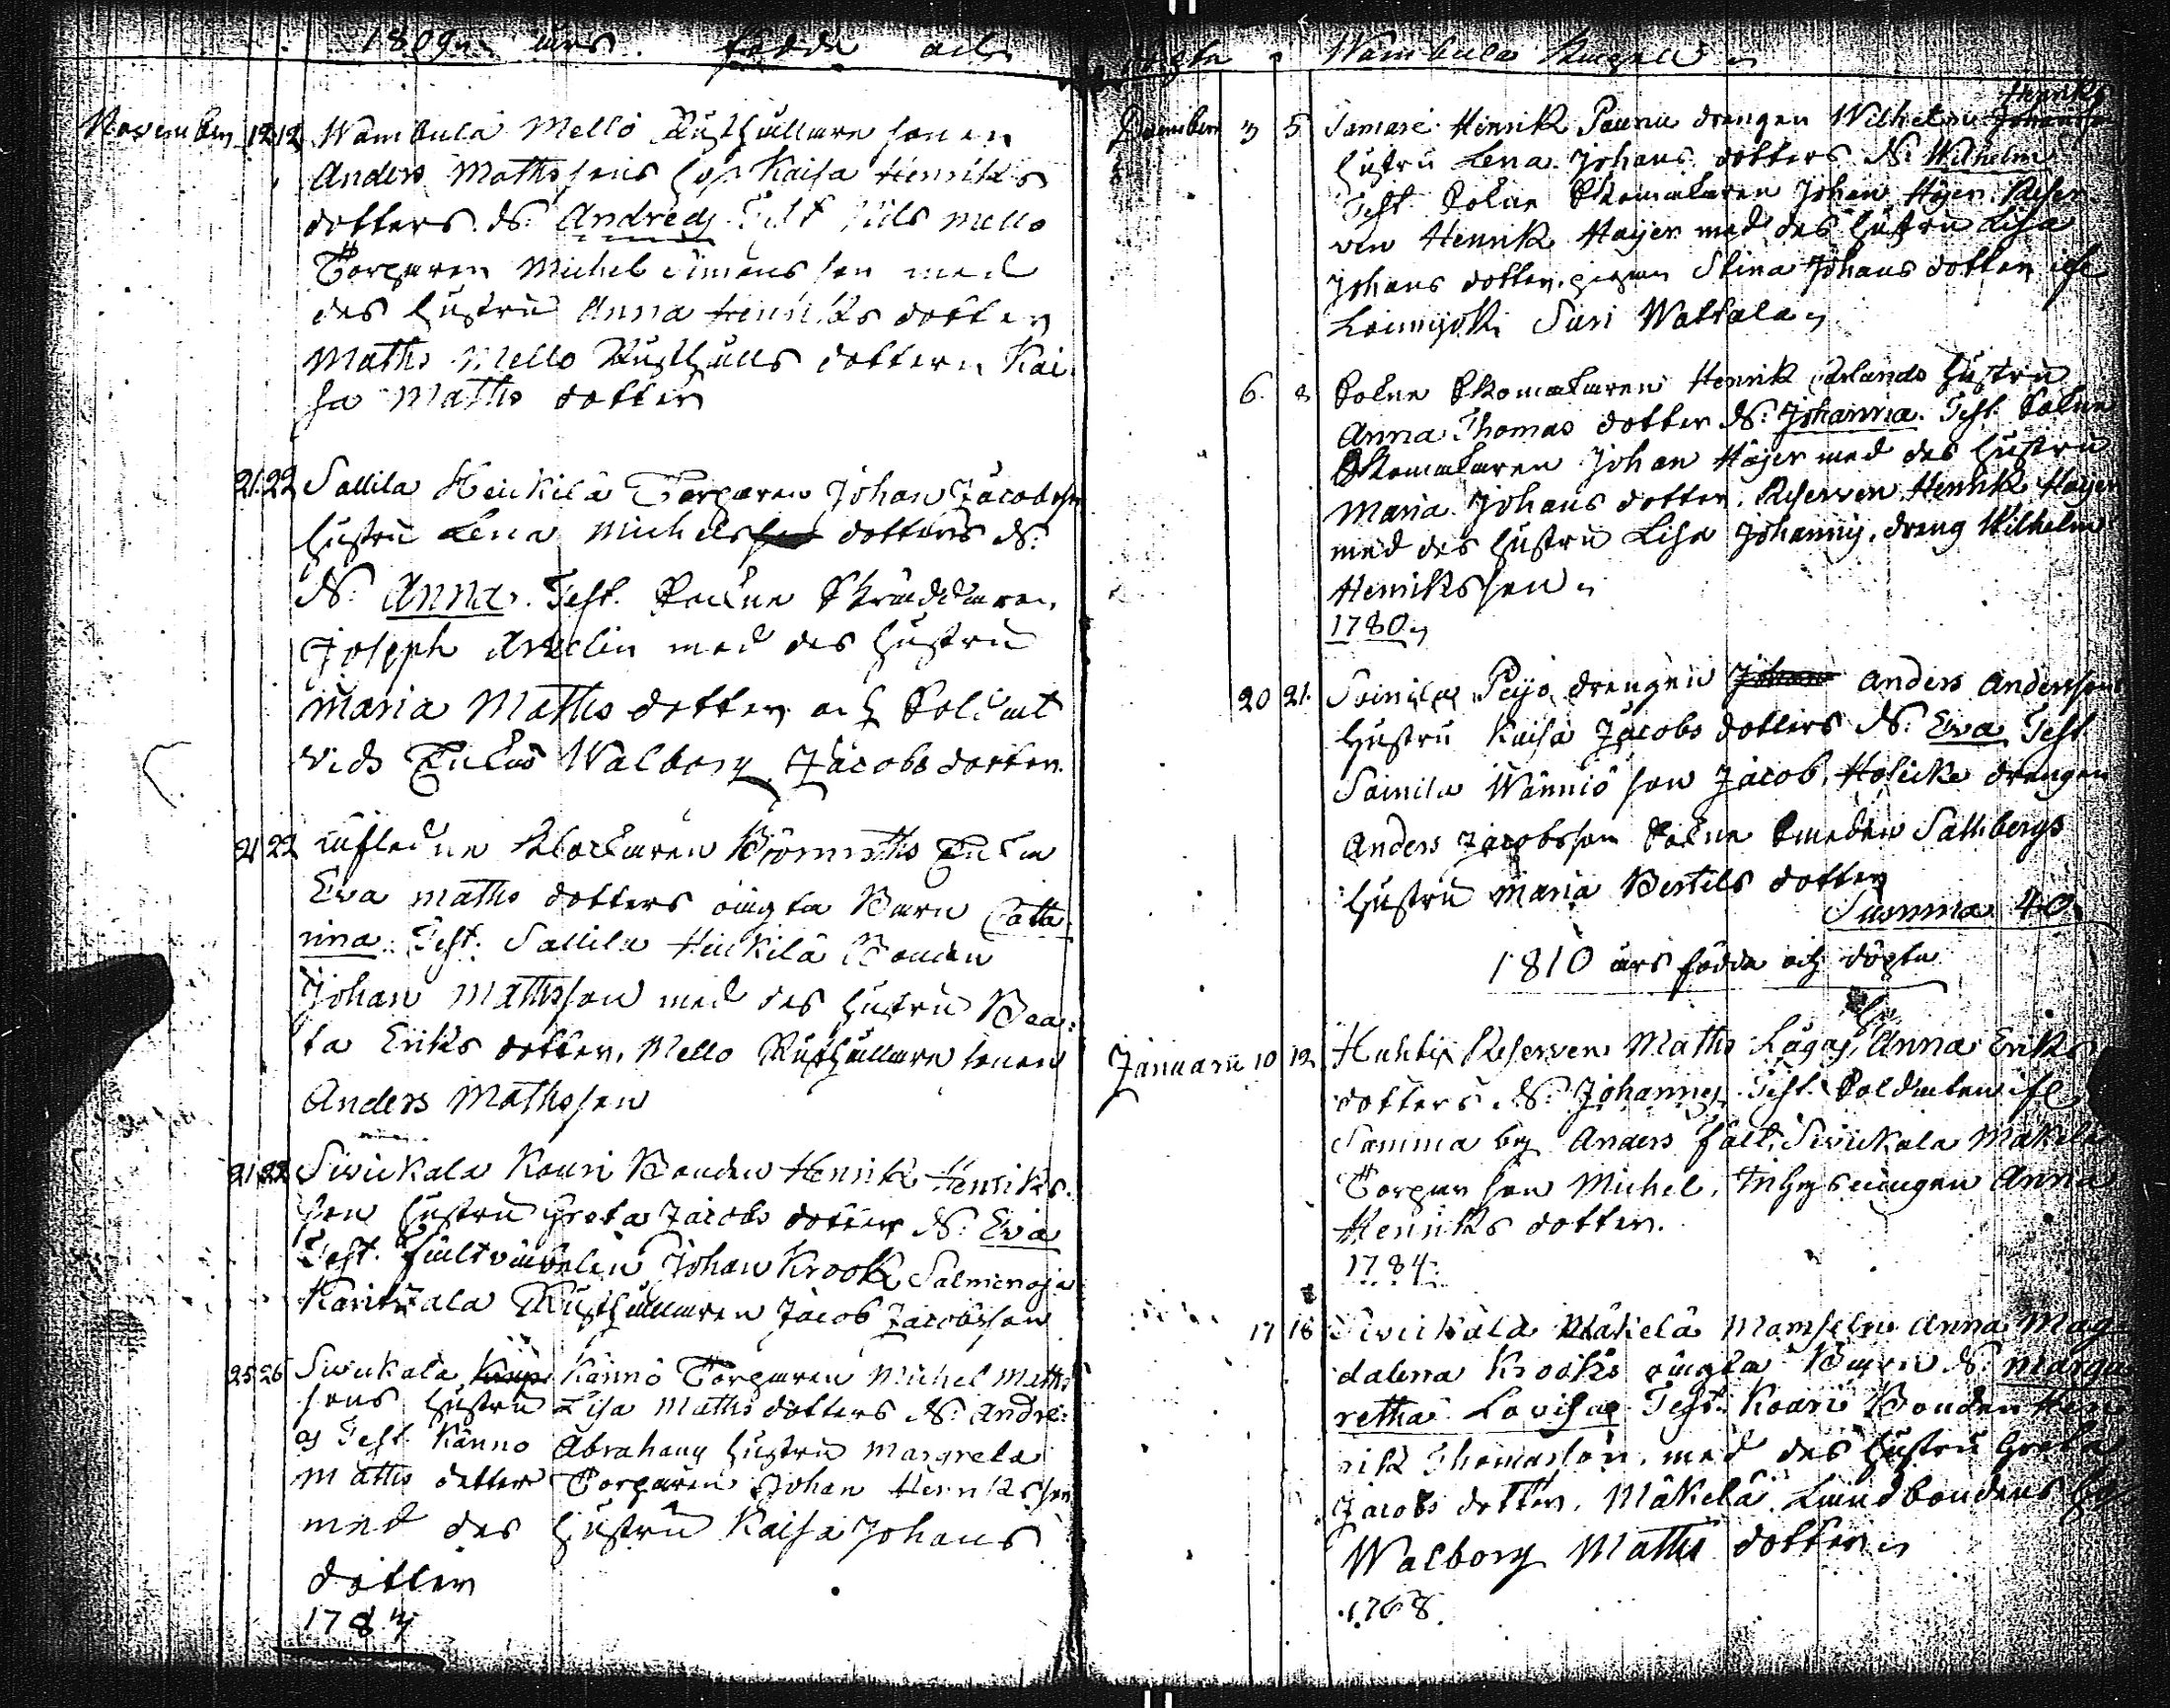 1809 års födde och
November 12 12 Wambula Mello Rusthållare sonen
Anders Mathssons h. Kaisa Henriks
dotters ds: Andreas Test Nils Mello
Torparen Michel Simonsson med
des hustru Anna Henriks dotter
Maths Mello Rusthålls dottern Kai
sa Maths dotter
21 22 Sallila Heickilä Torparen Johan Jacobsson
hustru Lena Michels dotters ds:
ds: Anna. Test. Sockne Skräddaren
Joseph med des hustru
Maria Maths dotter och Soldat
vids Enkan Walborg Jacobs dotter
21 22 afledne Klockaren Enka
Eva Maths dotters oägta Barn Catha
rina. Test: Sallila Heickilä Bonden
Johan Mathsson med des hustru Bea:
ta Eriks dotter. Mello Rusthållare sonen
Anders Mathsson
21 22 Sivickala Kouri Bonden Henrik Henriks
son hustru Greta Jacobs dotter ds: Eva
Test. Fältväbelen Johan Krook Salmenoja
Rusthållaren Jacob Jacobsson
25 26 Sivickala Kännö Torparen Michel Maths
sons hustru Lisa Maths dotters ds: Andre:
as Test. Känno Abrahams hustru Margreta
Maths dotter Torparen Johan Henriksson
med des hustru Kaisa Johans
dotter
1787
döpte Wambula Capell
Henriks
December 3 5 Henrik drengen Wilhelm
hustru Lena Johans dotters ds: Wilhelm
Test. Sockne Skomakaren Johan Höijer. Reser
ven Henrik Haijer med des hustru Lisa
Johans dotter. pigan Stina Johans dotter ifr
Loimijoki Suri Wattala
6. 8 Sockne Skomakaren Henrik hustru
Anna Thomas dotter ds: Johanna. Test. Sockne
Skomakaren Johan Höjer med des hustru
Maria Johans dotter. Reserven Henrik Hayer
med des hustru Lisa Johans, dreng Wilhelm
Henriksson
1780
20 21. Soinila drengen Anders Anderssons
Hustru Kaisa Jacobs dotters ds: Eva Test
Soinila Wänniö son Jacob, drengen
Anders Jacobsson Sockne Smeden Sallbergs
hustru Maria Bertils dotter
Summa 40
1810 års födda och döpta
Januarii 10 12 Huhti Reserven Maths Anna Eriks
dotters ds: Johannes Test. Soldaten ifr
Samma by Anders Fält, Sivickala Mäkelä
Torpar son Michel, Inhysningen Anna
Henriks dotter.
1784
17 18 Sivickala Mäkelä Mamselne Anna Mag
dalena Krooks oägta Barn ds: Marga
retha Lovisa Test: Koari Bonden Hen
rik Thomasson med des hustru Greta
Jacobs dotter, Mäkelä Landbondens
Walborg Maths dotter
1768